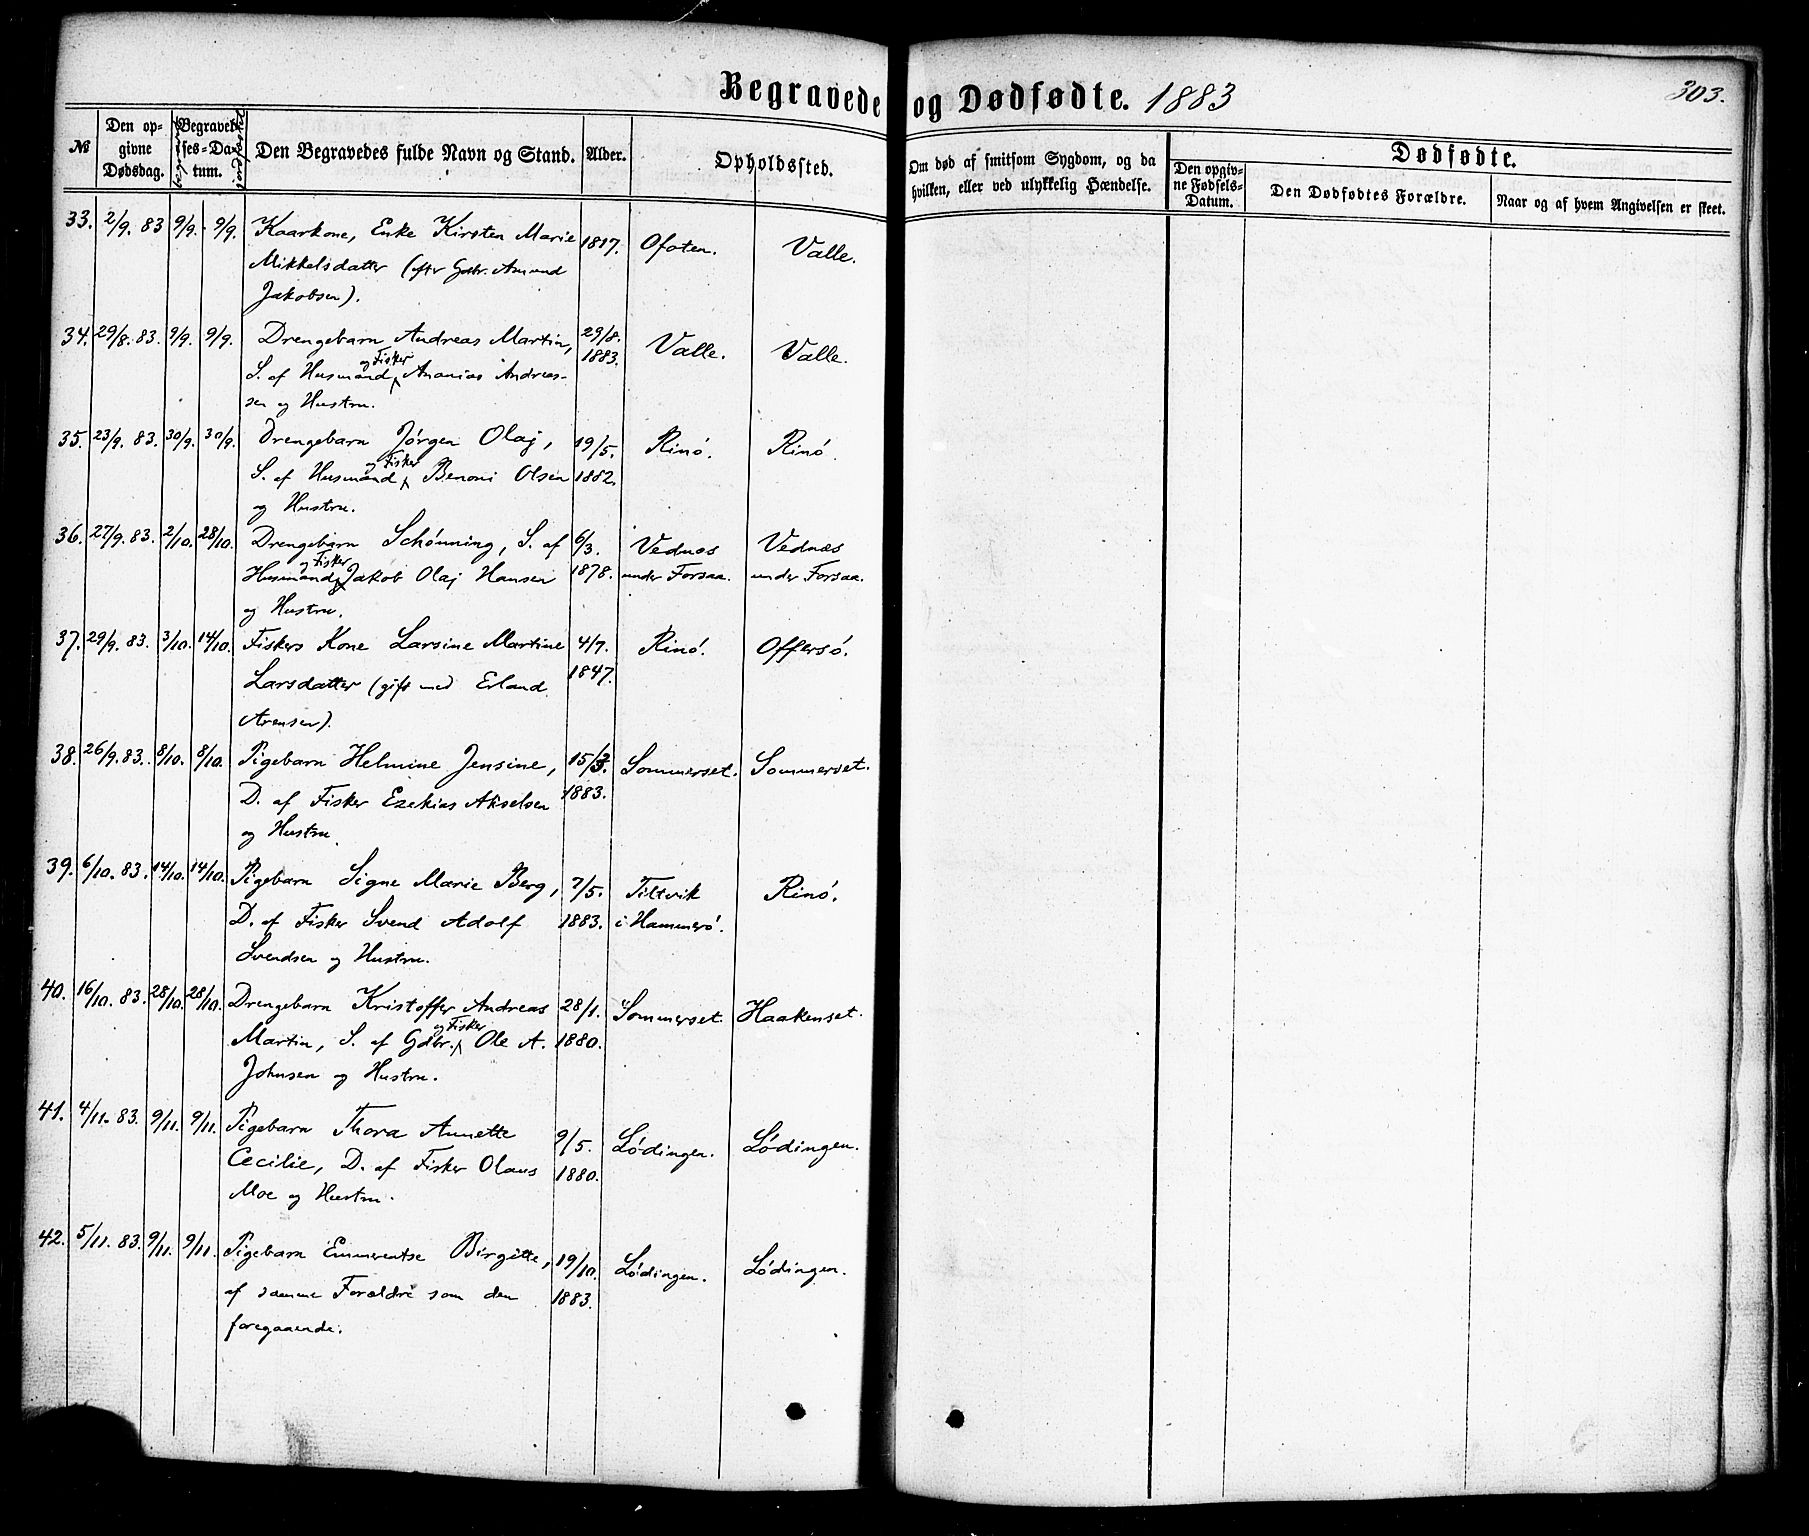 Begravede og Dødfødte. 1883
303.
№
Den op-
givne
Dødsdag.
Begravel-
ses-Da-
tum.
Den Begravedes fulde Navn og Stand.
Alder.
Opholdssted.
Om død af smitsom Sygdom, og da
hvilken, eller ved ulykkelig Hændelse.
Dødfødte.
Den opgiv-
ne Fødsels-
Datum.
Den Dødfødtes Forældre.
Naar og af hvem Angivelsen er skeet.
33. 2/9. 83 9/9. 9/9. Kaarkone, Enke Kirsten Marie 1817. Ofoten. Valle.
Mikkelsdatter (efter Gdbr. Amund
Jakobsen).
34. 29/8. 83. 9/9. 9/9. Drengebarn Andreas Martin, 29/8. Valle. Valle.
S. af Husmand og Fisker Ananias Andreas- 1883.
sen og Hustru.
35. 23/9. 83. 30/9. 30/9. Drengebarn Jørgen Olaj, 19/5. Rinø. Rinø.
S. af Husmand og Fisker Benoni Olsen 1882.
og Hustru.
36. 27/9. 83. 2/10. 28/10. Drengebarn Schønning, S. af 6/3. Vednæs Vednæs
Husmand og Fisker Jakob Olaj Hansen 1878. under Forsaa. under Forsaa.
og Hustru.
37. 29/9. 83. 3/10. 14/10. Fiskers Kone Larsine Martine 4/7. Rinø. Offersø.
Larsdatter (gift med Erland 1847.
Arensen).
38. 26/9. 83. 8/10. 8/10. Pigebarn Helmine Jensine, 15/3. Sommerset. Sommerset.
D. af Fisker Ezekias Akselsen 1883.
og Hustru.
39. 6/10. 83. 14/10. 14/10. Pigebarn Signe Marie Berg, 7/5. Tiltvik Rinø.
D. af Fisker Svend Adolf 1883. i Hammerø.
Svendsen og Hustru.
40. 16/10. 83. 28/10. 28/10. Drengebarn Kristoffer Andreas 28/1. Sommerset. Haakenset.
Martin, S. af Gdbr. og Fisker Ole A. 1880.
Johnsen og Hustru.
41. 4/11. 83. 9/11. 9/11. Pigebarn Thora Annette 9/5. Lødingen. Lødingen.
Cecilie, D. af Fisker Olaus 1880.
Moe og Hustru.
42. 5/11. 83. 9/11. 9/11. Pigebarn Emmerentse Birgitte, 19/10. Lødingen. Lødingen.
af samme Forældre som den 1883.
foregaaende.